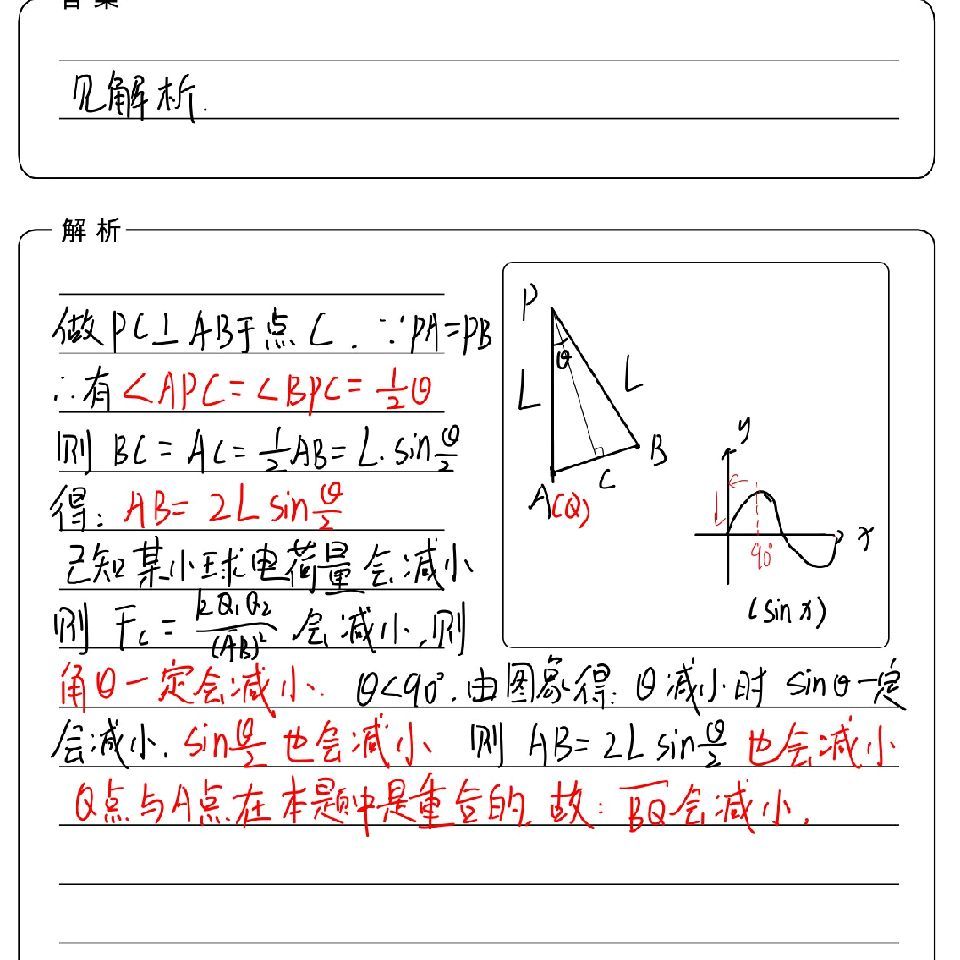 答案
见解析.
解析
做PC⊥AB于点C. ∵PA=PB
∴有∠APC=∠BPC=½θ
则 BC=AC=½AB=L·sin θ/2
得: AB=2L sin θ/2
已知某小球电荷量会减小
则 Fc= kQ₁Q₂/(AB)² 会减小,则
角θ一定会减小. θ<90°.由图象得:θ减小时 sinθ一定
会减小. sin θ/2 也会减小 则 AB=2L sin θ/2 也会减小
Q点与A点在本题中是重合的.故: BQ会减小.
P
θ
L
L
B
C
A(Q)
y
1
x
90°
(sin x)